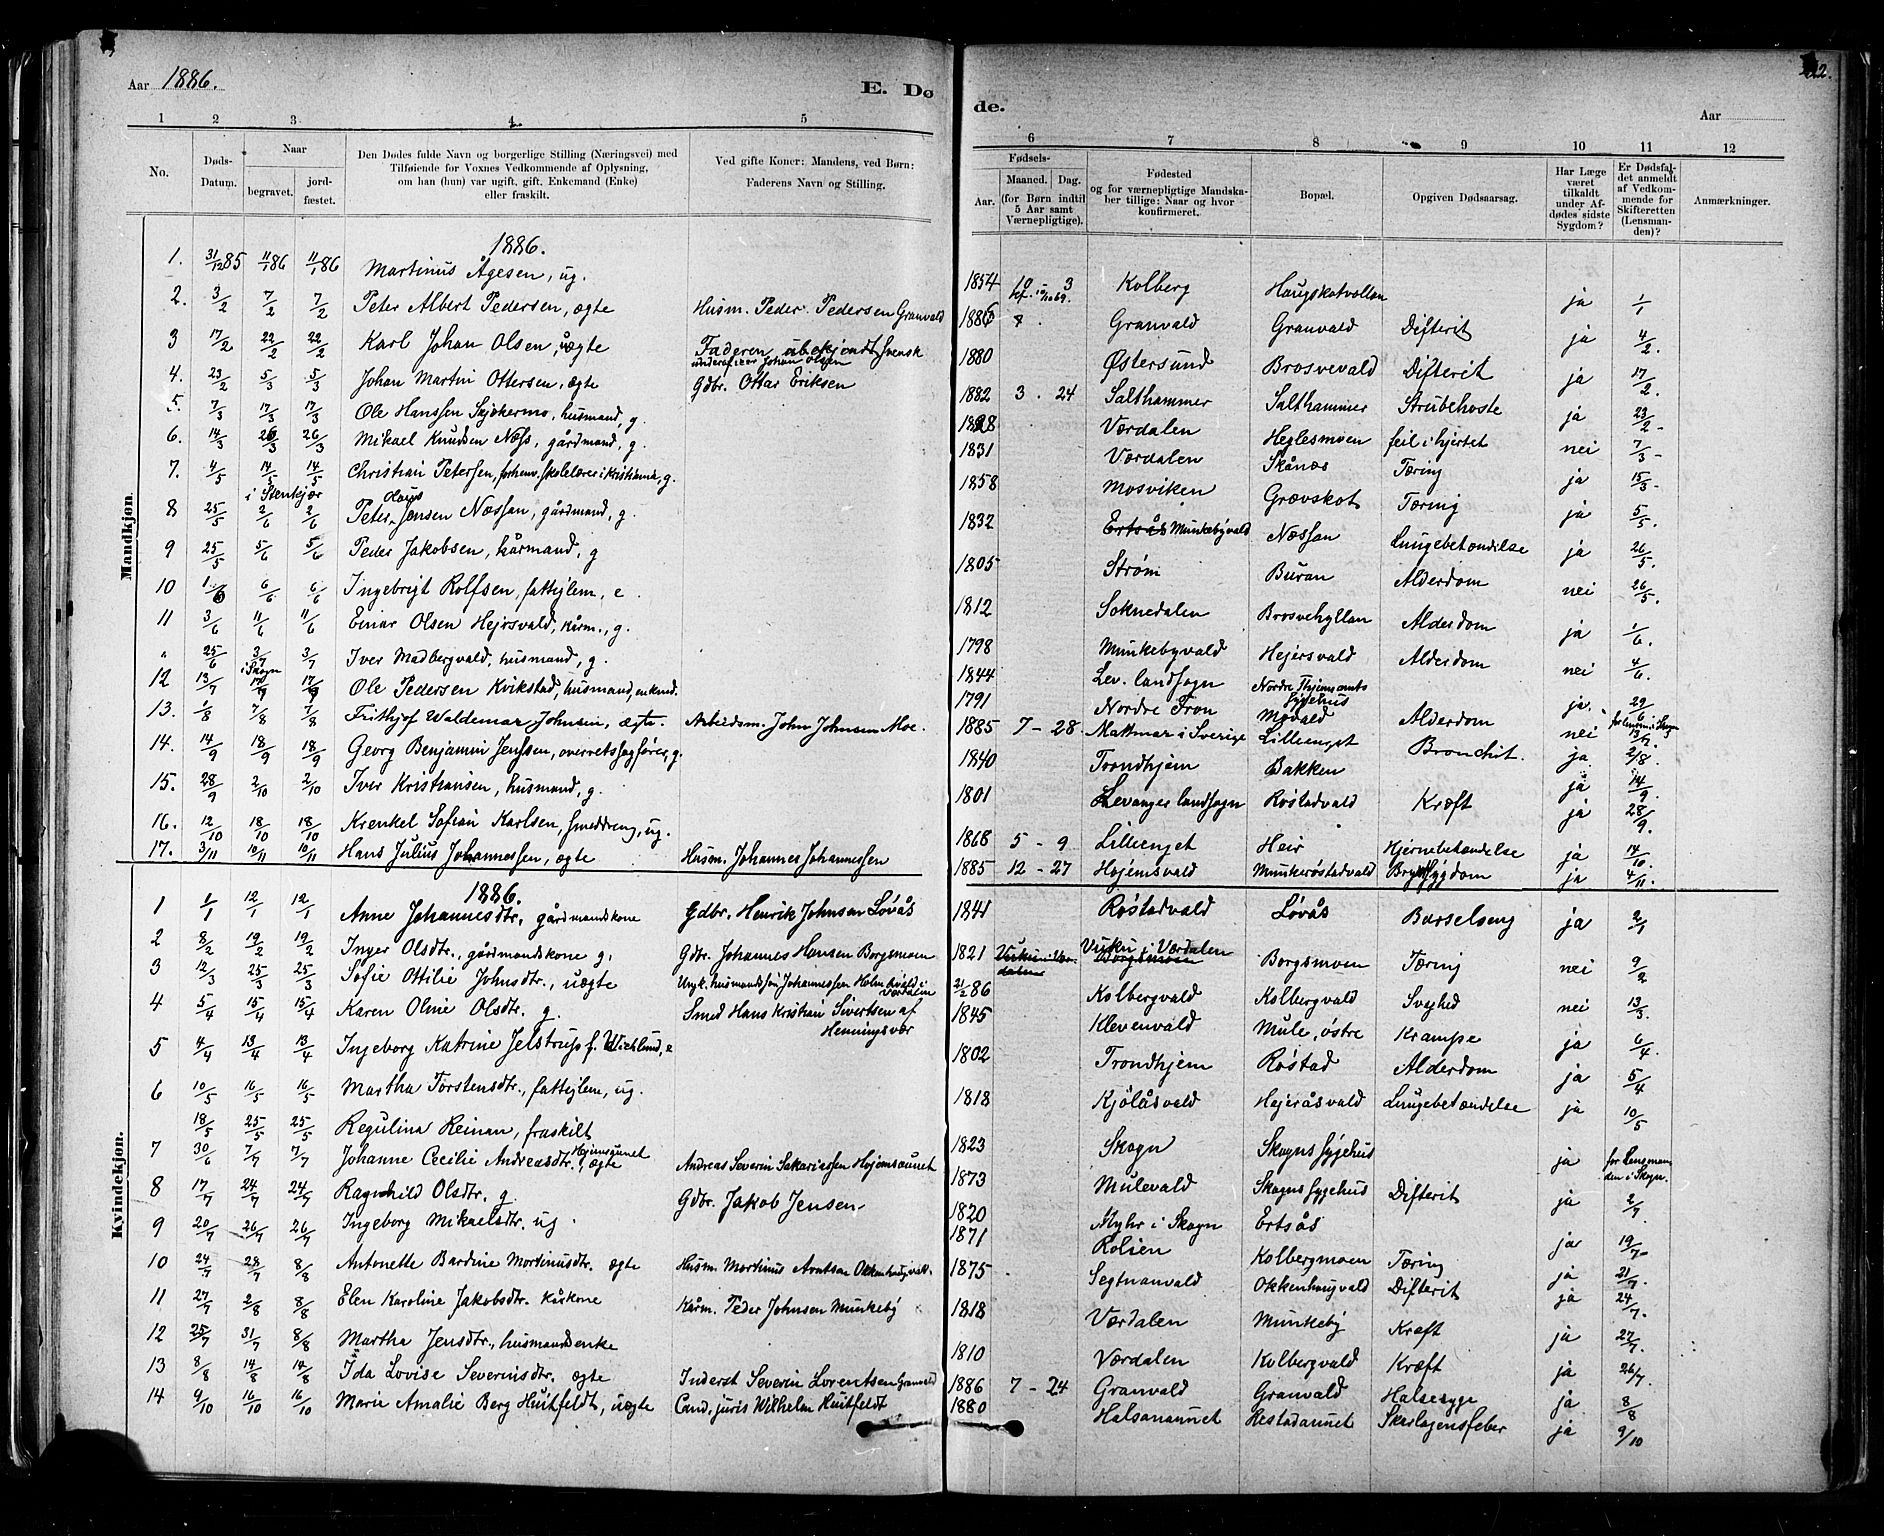 Aar 1886.
E. Dø
de.
Aar
1 2 3 4 5
6 7 8 9 10 11 12
No. Døds-Datum. Naar begravet. jordfæstet. Den Dødes fulde Navn og borgerlige Stilling (Næringsvei) med Tilføiende for Voxnes Vedkommende af Oplysning, om han (hun) var ugift, gift, Enkemand (Enke) eller fraskilt. Ved gifte Koner: Mandens, ved Børn: Faderens Navn og Stilling.
Fødsels- Aar. Maaned. Dag. (for Børn indtil 5 Aar samt Værnepligtige). Fødested og for værnepligtige Mandskaber tillige: Naar og hvor konfirmeret. Bopæl. Opgiven Dødsaarsag. Har Læge været tilkaldt under Afdødes sidste Sygdom? Er Dødsfaldet anmeldt af Vedkommende for Skifteretten (Lensmanden)? Anmærkninger.
Mandkjøn.
1886.
1. 31/12 85 11/1 86 11/1 86 Martinus Ågesen, ug. 1854 10 3 Kolberg Haugskotvollan ja 1/1
2. 3/2 7/2 7/2 Peter Albert Pedersen, ægte Husm. Peder Pedersen Granvald 1886 Granvald Granvald Difterit ja 4/2.
3 17/2 22/2 22/2 Karl Johan Olsen, uægte Faderen ubekjendt Svensk underofficer Johan Olsen 1880 Østersund Brosvevald Difterit ja 17/2.
4. 23/2 5/3 5/3 Johan Martin Ottersen, ægte Gdbr. Ottar Eriksen 1882 3. 24 Salthammer Salthammer Strubehoste ja 23/2-
5. 7/3 17/3 17/3 Ole Hanssen Sjøkermo, husmand, g. 1828 Værdalen Heglesmoen feil i hjertet nei 7/3-
6. 14/3 26/3 26/3 Mikael Knudsen Næss, gårdmand, g. 1831 Værdalen Skånæs Tæring ja 15/3-
7. 4/5 14/5 14/5 Christian Petersen, forhenv. skolelærer i Kristiania, g. 1858 Mosviken Grævskot Tæring ja 5/5.
i Stenkjær
8 25/5 2/6 2/6 Peter Jensen Næssan, gårdmand, g. 1832 Ertsås Munkebyvald Næssan Lungebetændelse ja 26/5.
9 25/5 5/6 5/6 Peder Jakobsen, kårmand, g 1805 Strøm Buran Alderdom nei 26/5.
10 1/6 6/6 6/6 Ingebrigt Rolfsen, fattiglem, e. 1812 Soknedalen Brosvehyllan Alderdom ja 1/6.
11 3/6 11/6 11/6 Einar Olsen Hejrsvald, kårm., g. 1798 Munkebyvald Hejersvald Alderdom nei 4/6
" 25/6 3/7 3/7 Iver Madbergvald, husmand, g. 1844 Lev. landsogn Nordre Thjems amts sygehus ja. 29/6
i Skogn
12 13/7 17/9 17/9 Ole Pedersen Kvikstad, husmand, enkmd. 1791 Nordre Fron Movald Alderdom nei for lensm. i Skogn 13/7.
13. 1/8 7/8 7/8 Frithjof Waldemar Johnsen, ægte. Arbeidsm. John Johnsen Moe. 1885 7-28. Mattmar i Sverige Lilleenget Bronchit. ja 2/8.
14. 14/9 18/9 18/9 Georg Benjamin Jenssen, overretssagfører, g. 1840 Trondhjem Bakken ja 14/9.
15. 28/9 2/10 2/10 Iver Kristiansen, husmand, g. 1801 Levanger landsogn Røstadvald Kræft ja 28/9.
16. 12/10 18/10 18/10 Krenkel Sofian Karlsen, smeddreng, ug. 1868 5-9 Lilleenget Heir Hjernebetændelse ja 14/10.
17. 3/11 10/11 10/11 Hans Julius Johannessen, ægte Husm. Johannes Johannessen 1885 12-27 Hojemsvald Munkerøstadvald Brystsygdom ja 4/11.
Kvindekjøn.
1886.
1 1/1 12/1 12/1 Anne Johannesdtr., gårdmandskone Gdbr. Henrik Johnsen Løvås 1841 Røstadvald Løvås Barselseng ja 2/1
2 8/2 19/2 19/2 Inger Olsdtr., gårdmandskone g. Gdbr. Johannes Hansen Borgsmoen 1821 Vuku i Værdalen Vuku i Værdalen Borgsmoen Borgsmoen Tæring nei 9/2
3 12/3 25/3 25/3 Sofie Ottilie Johnsdtr., uægte Ungk. husmandssøn Johannessen Holmlivald i Værdalen 21/2 86 Kolbergvald Kolbergvald Svaghed nei 13/3.
4 5/4 15/4 15/4 Karen Oline Olsdtr. g. Smed Hans Kristian Sivertsen af Henningsvær 1845 Klevenvald Mule, østre Krampe ja 6/4.
5 4/4 13/4 13/4 Ingeborg Katrine Jelstrup f. Wichlund, e 1802 Trondhjem Røstad Alderdom ja 5/4
6 10/5 16/5 16/5 Martha Torstensdtr., fattiglem, ug. 1818 Kjølåsvald Hejeråsvald Lungebetændelse ja 10/5
18/5 25/5 25/5 Regulina Reinan, fraskilt 1823 Skogn Skogns sygehus ja for Lensmanden i Skogn.
7 30/6 7/7 7/7 Johanne Cecilie Andreasdtr. Hojemsaunet, ægte Andreas Severin Sakariassen Hojemsaunet 1873 Mulevald Skogns sygehus Difterit ja 2/7.
8 17/7 24/7 24/7 Ragnhild Olsdtr. g. Gdbr. Jakob Jensen 1820 Myhr i Skogn Ertsås ja 19/7-
9 20/7 26/7 26/7 Ingeborg Mikaelsdtr. ug. 1871 Rolien Kolbergmoen Tæring ja 21/7.
10 24/7 28/7 8/8 Antonette Bardine Mortinusdtr. ægte Husm. Mortinus Arntsen Okkenhaugvald. 1875 Segtnanvald Okkenhaugvald Difterit ja 24/7.
11 27/7 2/8 8/8 Elen Karoline Jakobsdtr. kårkone Kårm. Peder Johnsen Munkeby 1818 Værdalen Munkeby Kræft ja 27/7.
12 25/7 31/7 8/8 Martha Jensdtr., husmandsenke 1810 Værdalen Kolbergvald Kræft ja 26/7.
13 8/8 14/8 14/8 Ida Lovise Severinsdtr. ægte Inderst Severin Lorentsen Granvald 1886 7-24 Granvald Granvald Halsesyge ja 8/8
14 9/10 16/10 16/10 Marie Amalie Berg Huitfeldt, uægte Cand. juris Wilhelm Huitfeldt 1880 Halsanaunet Restadaunet Skarlagensfeber ja 9/10